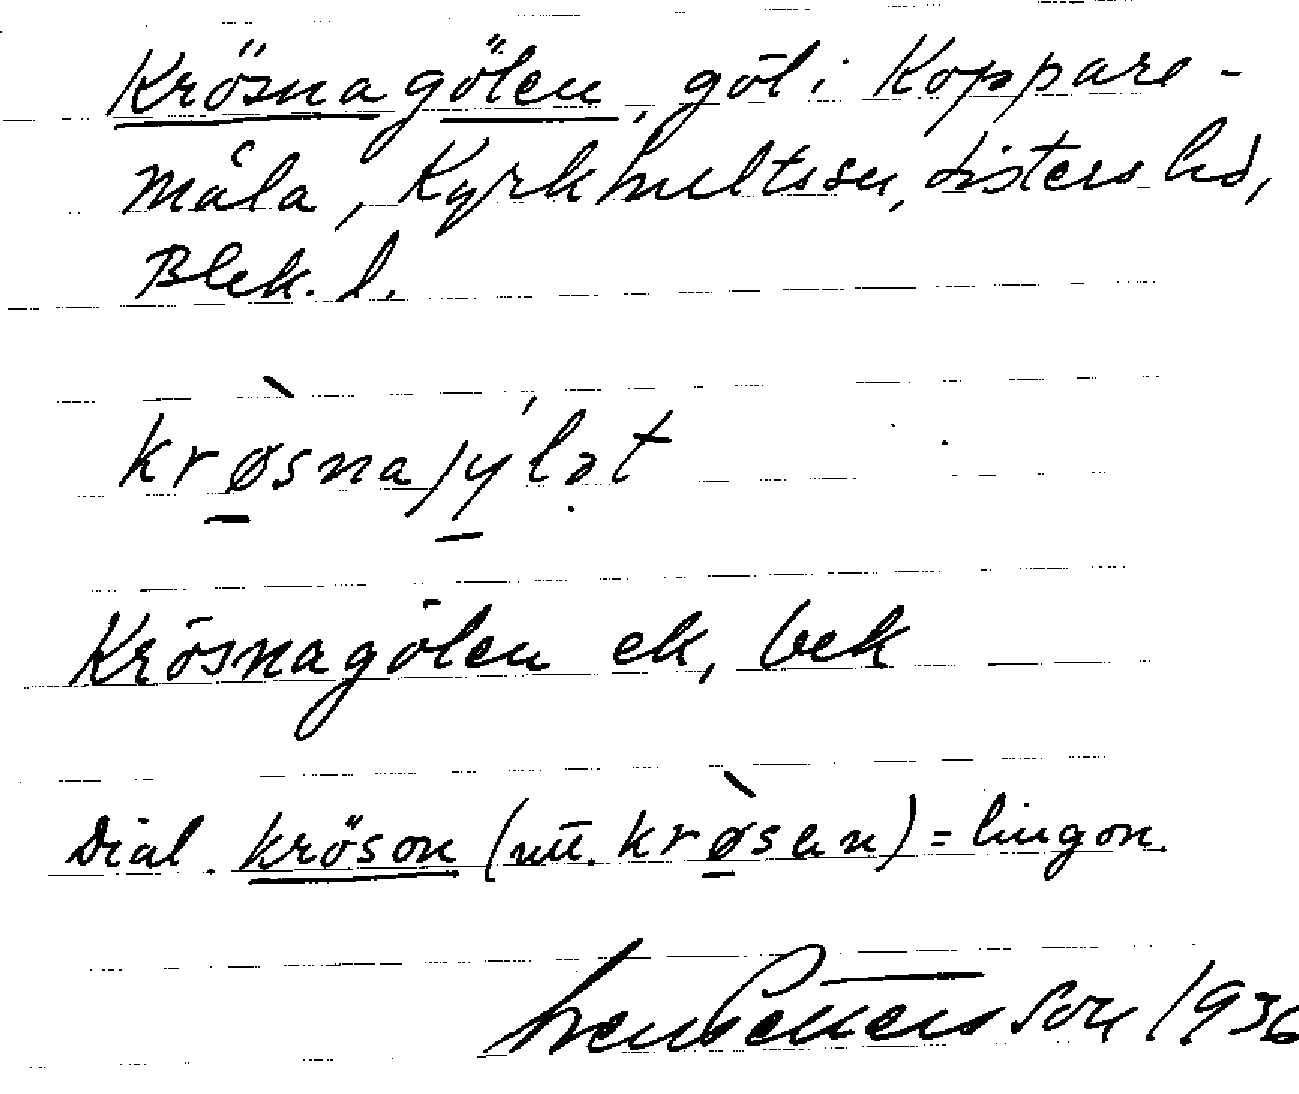 Krösnagölen, göl i Koppare-
måla, Kyrkhults sn, Listers hd,
Blek. l.
krø̀snajýlət
Krösnagölen ek, bek
Dial. kröson (utt. krø̀sån) = lingon.
Sven Pettersson 1936